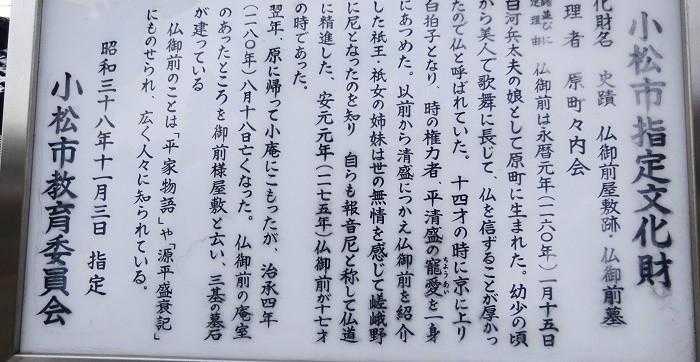 小松市指定文化財
化財名　史蹟　仏御前屋敷跡・仏御前墓
理者　原町々内会
仏御前は永暦元年(一一六〇年)一月十五日
白河兵太夫の娘として原町に生まれた。幼少の頃
から美人で歌舞に長じて、仏を信ずることが厚かっ
たので仏と呼ばれていた。十四才の時に京に上り
白拍子となり、時の権力者、平清盛の寵愛を一身
にあつめた。以前から清盛につかえ仏御前を紹介
した祇王・祇女の姉妹は世の無情を感じて嵯峨野
に尼となったのを知り　自らも報音尼と称して仏道
に精進した、安元元年(一一七五年)仏御前が十七才
の時であった。
翌年、原に帰って小庵にこもったが、治承四年
(一一八〇年)八月十八日亡くなった。仏御前の庵室
のあったところを御前様屋敷と云い、三基の墓石
が建っている
仏御前のことは「平家物語」や「源平盛衰記」
にものせられ、広く人々に知られている。
昭和三十八年十一月三日　指定
小松市教育委員会